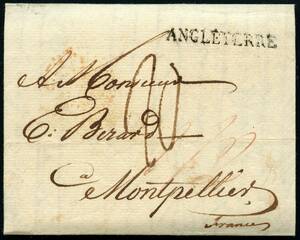 ANGLETERRE
A Monsieur
E: Berard
a
Montpellier
France